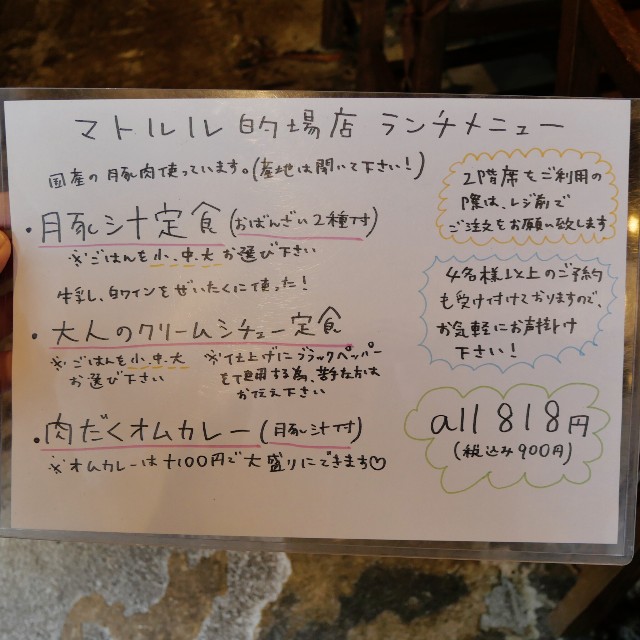 マトルル 的場店 ランチメニュー
国産の豚肉使っています。(産地は聞いて下さい!)
・豚汁定食(おばんざい2種付)
※ごはんを小、中、大お選び下さい
牛乳、白ワインをぜいたくに使った!
・大人のクリームシチュー定食
※ごはんを小、中、大
お選び下さい
※仕上げにブラックペッパー
を使用する為、苦手な方は
お伝え下さい
・肉だくオムカレー(豚汁付)
※オムカレーは+100円で大盛りにできます♡
2階席をご利用の
際は、レジ前で
ご注文をお願い致します
4名様以上のご予約
も受け付けておりますので、
お気軽にお声掛け
下さい!
all 818円
(税込み900円)